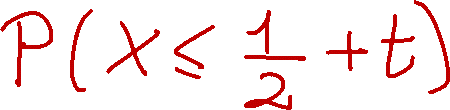 P(X ≤ 1/2 + t)